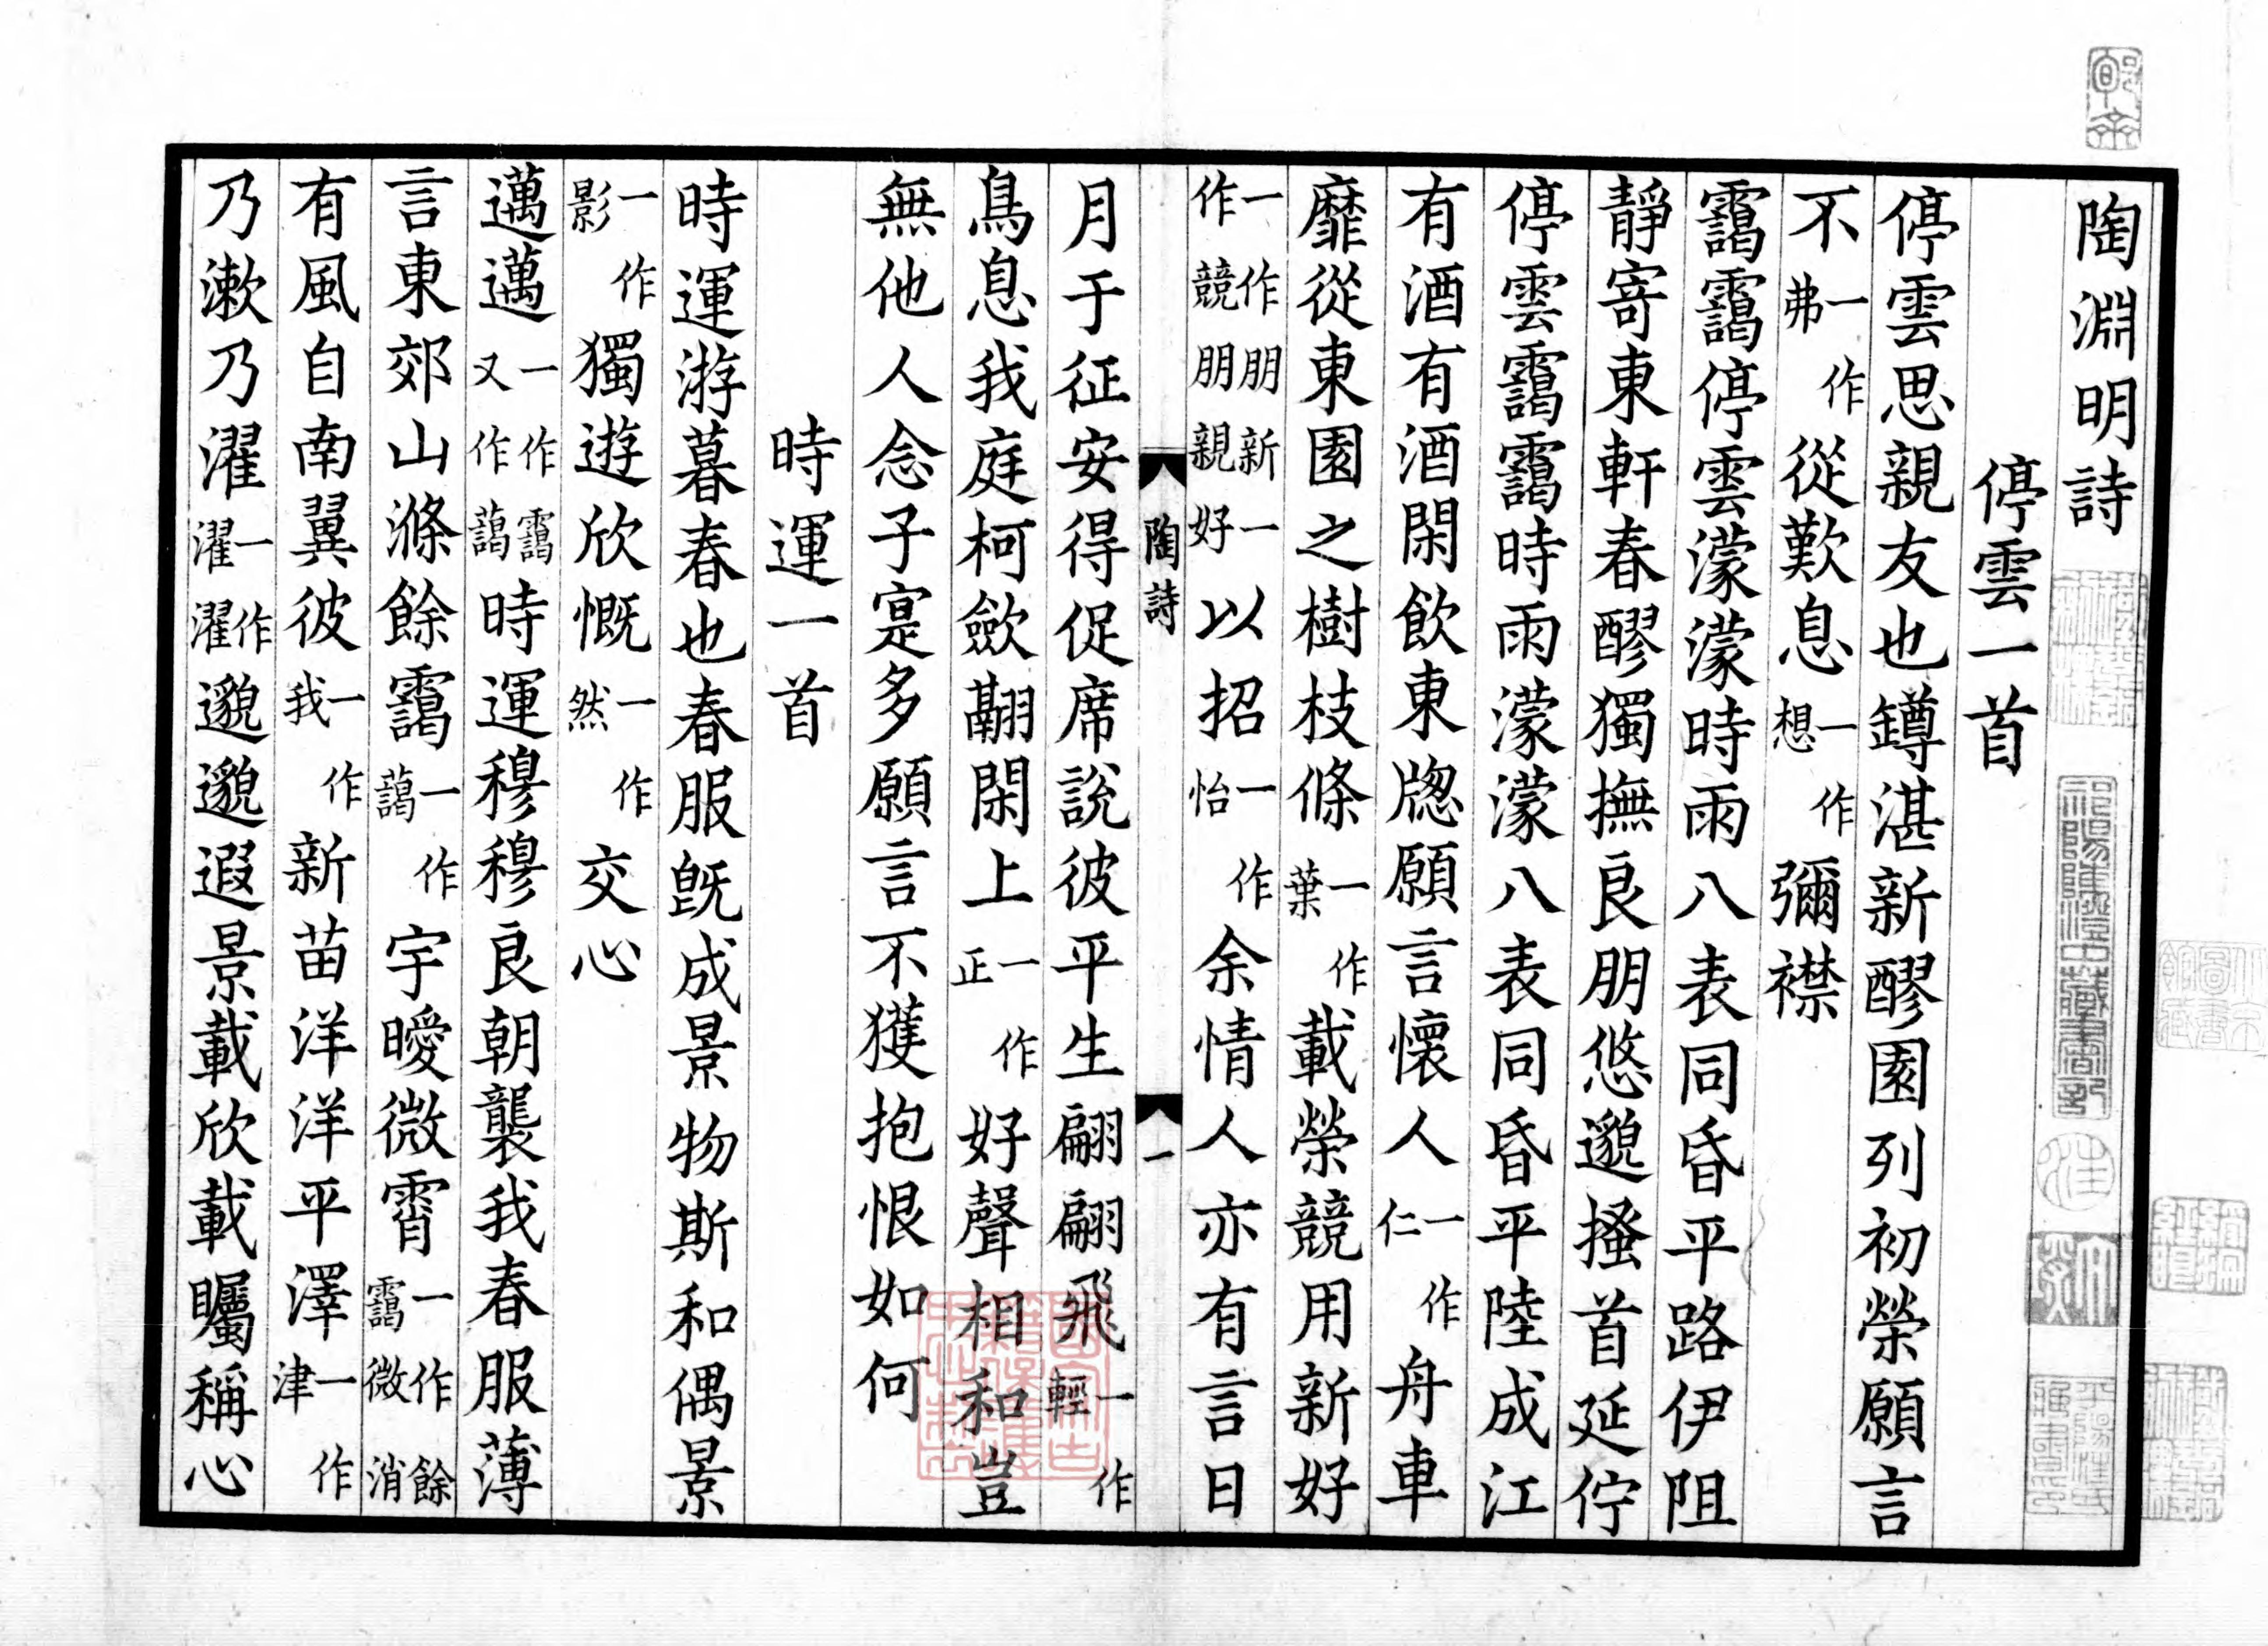 陶淵明詩
停雲一首
停雲思親友也罇湛新醪園列初榮願言
不一作弗從歎息一作想彌襟
靄靄停雲濛濛時雨八表同昏平路伊阻
靜寄東軒春醪獨撫良朋悠邈搔首延佇
停雲靄靄時雨濛濛八表同昏平陸成江
有酒有酒閑飲東牕願言懷人一作仁舟車
靡從東園之樹枝條一作葉載榮競用新好
一作朋新一作競朋親好以招一作怡余情人亦有言日
陶詩 一
月于征安得促席說彼平生翩翩飛一作輕
鳥息我庭柯歛翮閑上一作正好聲相和豈
無他人念子寔多願言不獲抱恨如何
時運一首
時運游暮春也春服旣成景物斯和偶景
一作影獨遊欣慨一作然交心
邁邁一作靄又作藹時運穆穆良朝襲我春服薄
言東郊山滌餘靄一作藹宇曖微霄一作餘靄微消
有風自南翼彼一作我新苗洋洋平澤一作津
乃漱乃濯一作濯濯邈邈遐景載欣載矚稱心